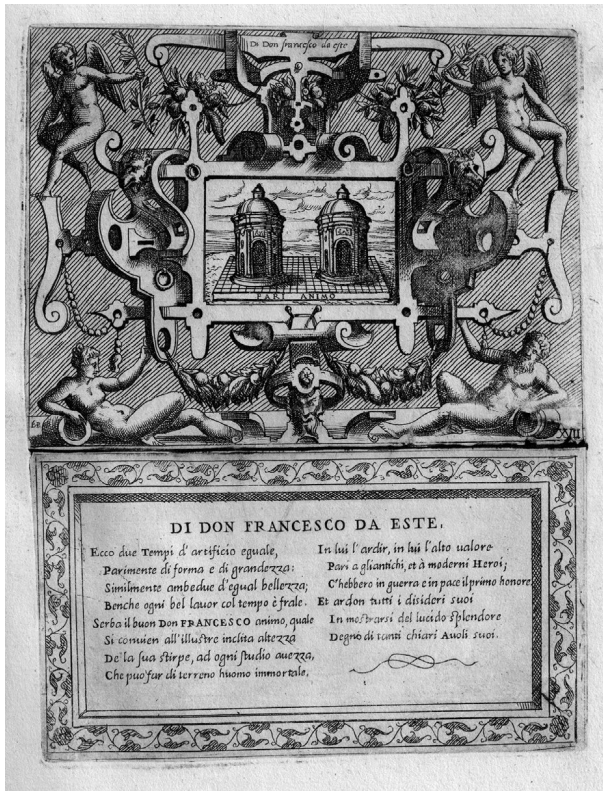 Di Don francesco da este
PARI ANIMO
XVII
DI DON FRANCESCO DA ESTE.
Ecco due Tempi d'artificio eguale,
Parimente di forma e di grandezza:
Similmente ambedue d'egual bellezza;
Benche ogni bel lauor col tempo è frale.
Serba il buon DON FRANCESCO animo, quale
Si conuien all'illustre inclita altezza
De la sua stirpe, ad ogni studio auezza,
Che puo far di terreno huomo immortale.
In lui l'ardir, in lui l'alto ualore
Pari a gli antichi, et à moderni Heroi;
C'hebbero in guerra e in pace il primo honore.
Et ardon tutti i disideri suoi
In mostrarsi del lucido splendore
Degno di tanti chiari Auoli suoi.